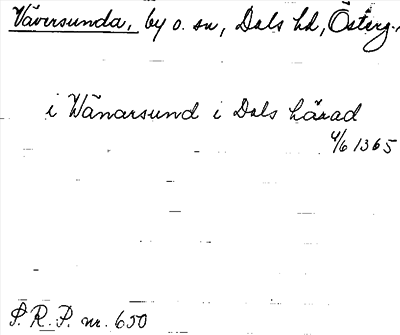 Väversunda, by o. sn, Dals hd, Österg.
i Wänarsund i Dals härad
4/6 1365
S. R. P. nr. 650